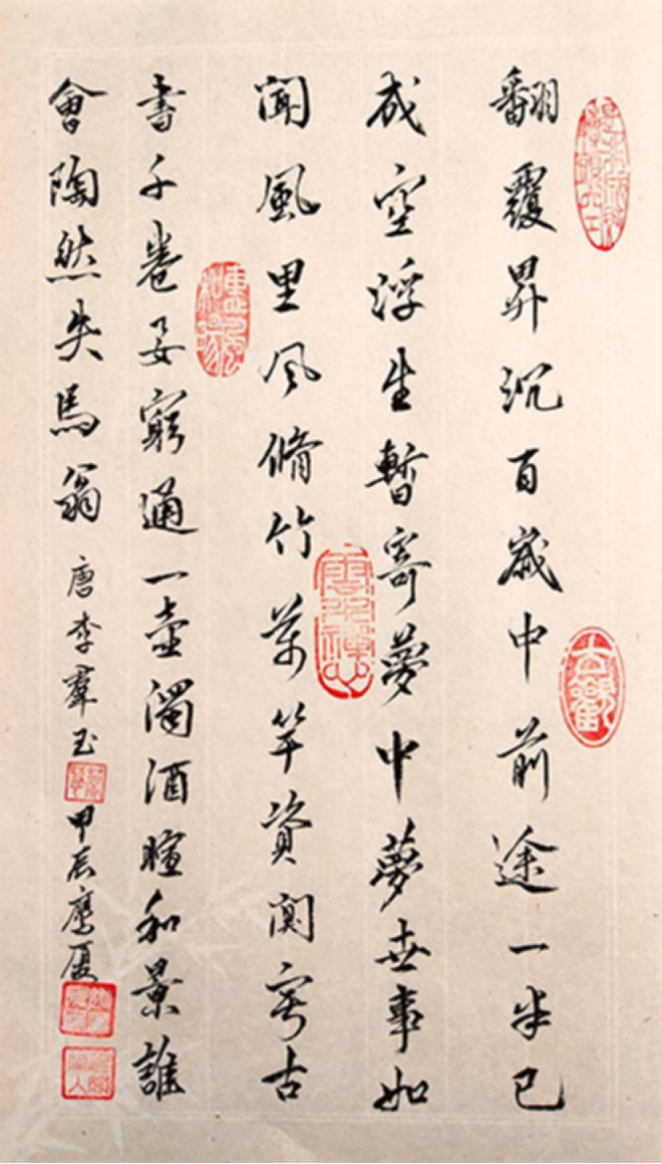 翻覆昇沉百歲中前途一半已
成空浮生暫寄夢中夢世事如
聞風里風脩竹萬竿資闃寂古
書千卷要窮通一壺濁酒暄和景誰
會陶然失馬翁 唐李羣玉 甲辰